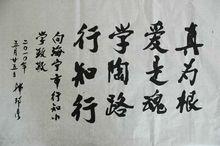 真为根
爱是魂
学陶路
行知行
向海宁市行知小
学致敬